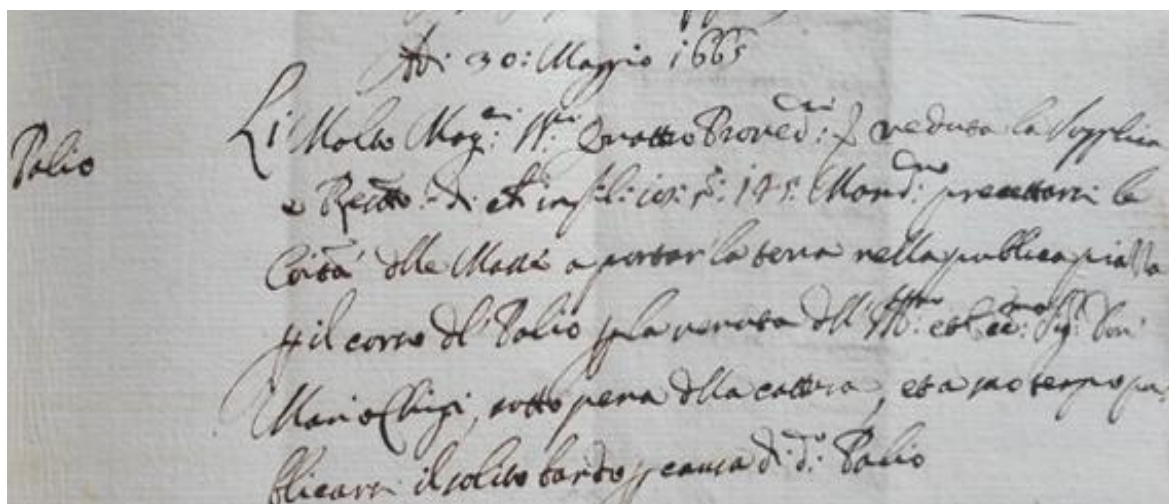 Adi 30: Maggio 1665
Palio
Li Molto Mag:ci SS:ri Quattro Proved:ri veduta la supplica
e Rescto: di 145: Mand:no precettarsi le
Coità delle Masse a portar la terra nella publica piazza
p il corso del Palio p la venuta dell' Ill:mo et Ecc:mo Sig: Don
Mario Chigi, sotto pena della cattura, et a suo tempo pu
blicarsi il solito bando p causa di d:o Palio